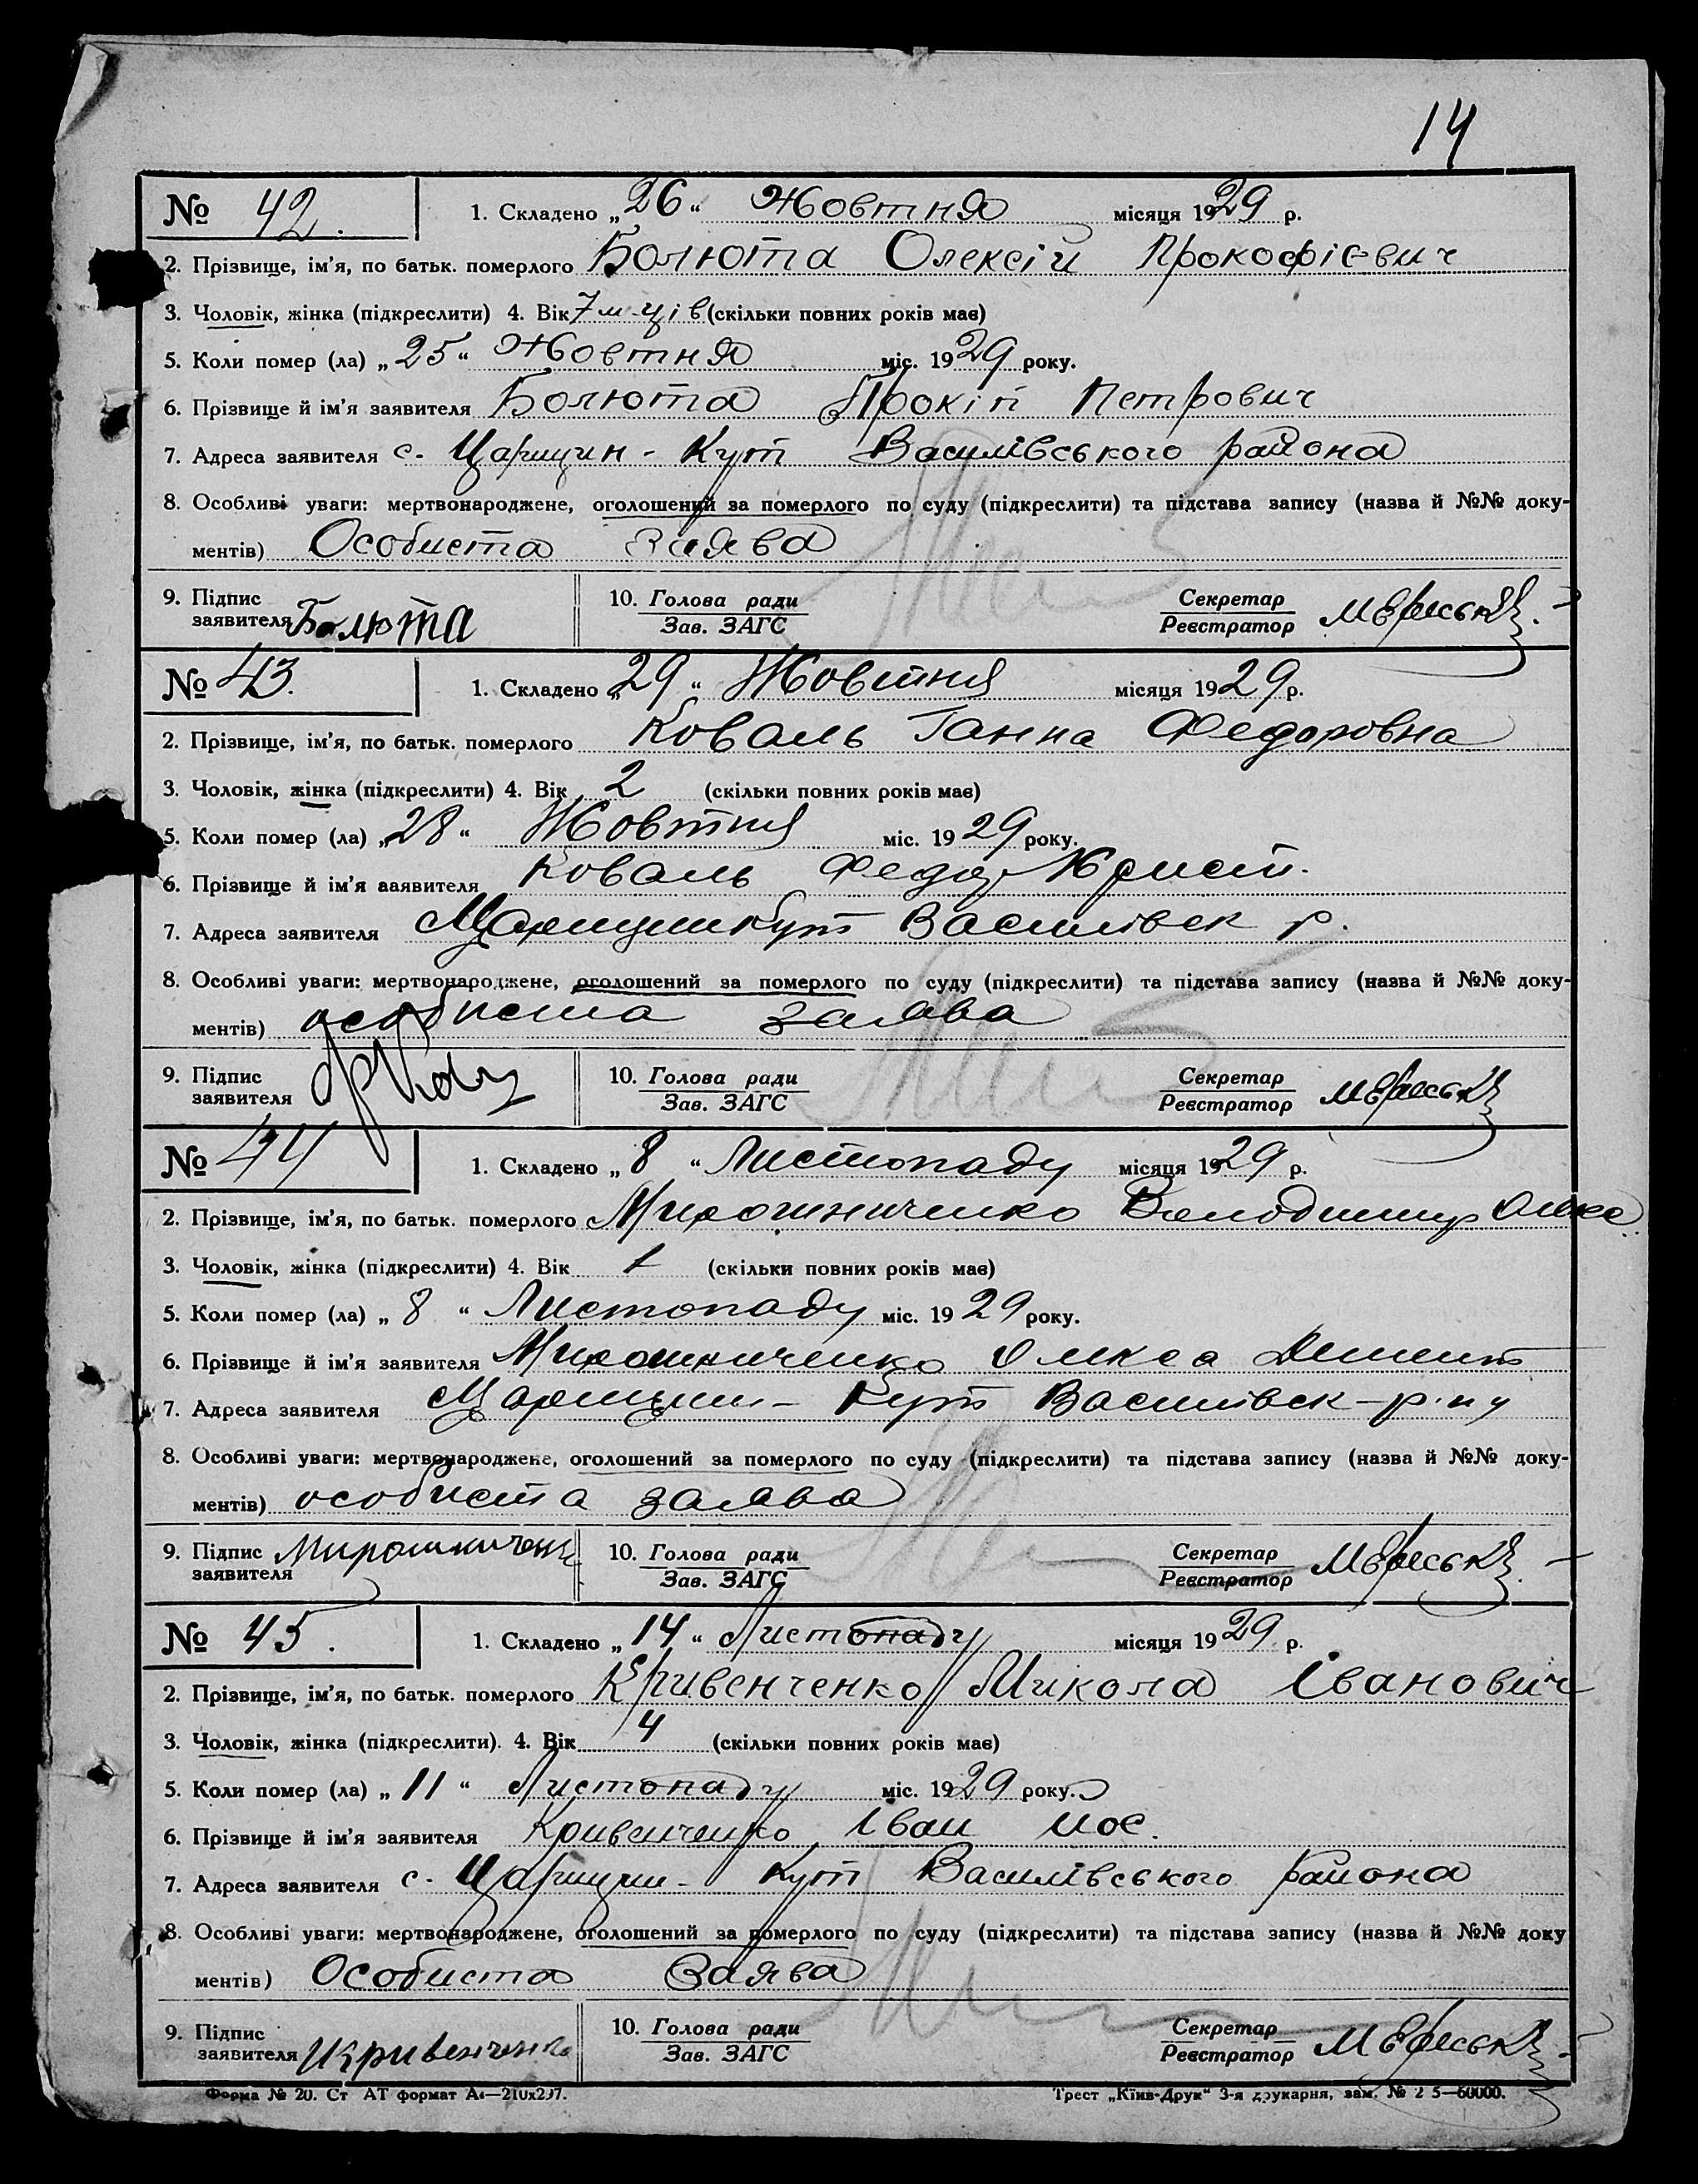 14
№ 42. 1. Складено „26“ Жовтня місяця 1929 р.
2. Прізвище, ім'я, по батьк. померлого Болюта Олексій Прокофієвич
3. Чоловік, жінка (підкреслити) 4. Вік 7 м-ців (скільки повних років має)
5. Коли помер (ла) „25“ Жовтня міс. 1929 року.
6. Прізвище й ім'я заявителя Болюта Прокіп Петрович
7. Адреса заявителя с. Царицин-Кут Василівського района
8. Особливі уваги: мертвонароджене, оголошений за померлого по суду (підкреслити) та підстава запису (назва й №№ доку-
ментів) Особиста заява
9. Підпис заявителя Болюта 10. Голова ради Зав. ЗАГС Секретар Реєстратор
№ 43. 1. Складено „29“ Жовтня місяця 1929 р.
2. Прізвище, ім'я, по батьк. померлого Коваль Ганна Федоровна
3. Чоловік, жінка (підкреслити) 4. Вік 2 (скільки повних років має)
5. Коли помер (ла) „28“ Жовтня міс. 1929 року.
6. Прізвище й ім'я заявителя Коваль Федор
7. Адреса заявителя Царицин Кут Василівськ р.
8. Особливі уваги: мертвонароджене, оголошений за померлого по суду (підкреслити) та підстава запису (назва й №№ доку-
ментів) особиста заява
9. Підпис заявителя 10. Голова ради Зав. ЗАГС Секретар Реєстратор
№ 44 1. Складено „8“ Листопаду місяця 1929 р.
2. Прізвище, ім'я, по батьк. померлого Мирошниченко Володимир Олекс
3. Чоловік, жінка (підкреслити) 4. Вік 1 (скільки повних років має)
5. Коли помер (ла) „8“ Листопаду міс. 1929 року.
6. Прізвище й ім'я заявителя Мирошниченко Олекса Демент
7. Адреса заявителя Царицин-Кут Василівськ-р-ну
8. Особливі уваги: мертвонароджене, оголошений за померлого по суду (підкреслити) та підстава запису (назва й №№ доку-
ментів) особиста заява
9. Підпис заявителя Мирошниченк 10. Голова ради Зав. ЗАГС Секретар Реєстратор
№ 45. 1. Складено „14“ Листопаду місяця 1929 р.
2. Прізвище, ім'я, по батьк. померлого Кривенченко Микола Іванович
3. Чоловік, жінка (підкреслити). 4. Вік 4 (скільки повних років має)
5. Коли помер (ла) „11“ Листопаду міс. 1929 року.
6. Прізвище й ім'я заявителя Кривенченко Іван Йос.
7. Адреса заявителя с. Царицин-Кут Василівського района
8. Особливі уваги: мертвонароджене, оголошений за померлого по суду (підкреслити) та підстава запису (назва й №№ доку
ментів) Особиста Заява
9. Підпис заявителя ИКривенченко 10. Голова ради Зав. ЗАГС Секретар Реєстратор
Форма № 20. Ст АТ формат А4—210х297. Трест „Київ-Друк“ 3-я друкарня, зам. №